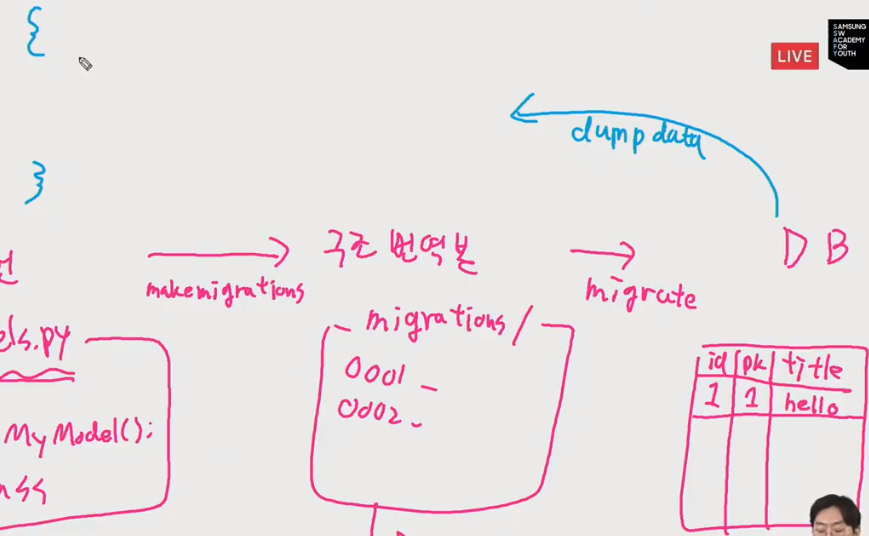 {
LIVE
SAMSUNG
SW
ACADEMY
FOR
YOUTH
dumpdata
}
구조 번역본
DB
makemigrations
migrate
els.py
migrations/
0001_
0002_
id pk title
1 1 hello
MyModel():